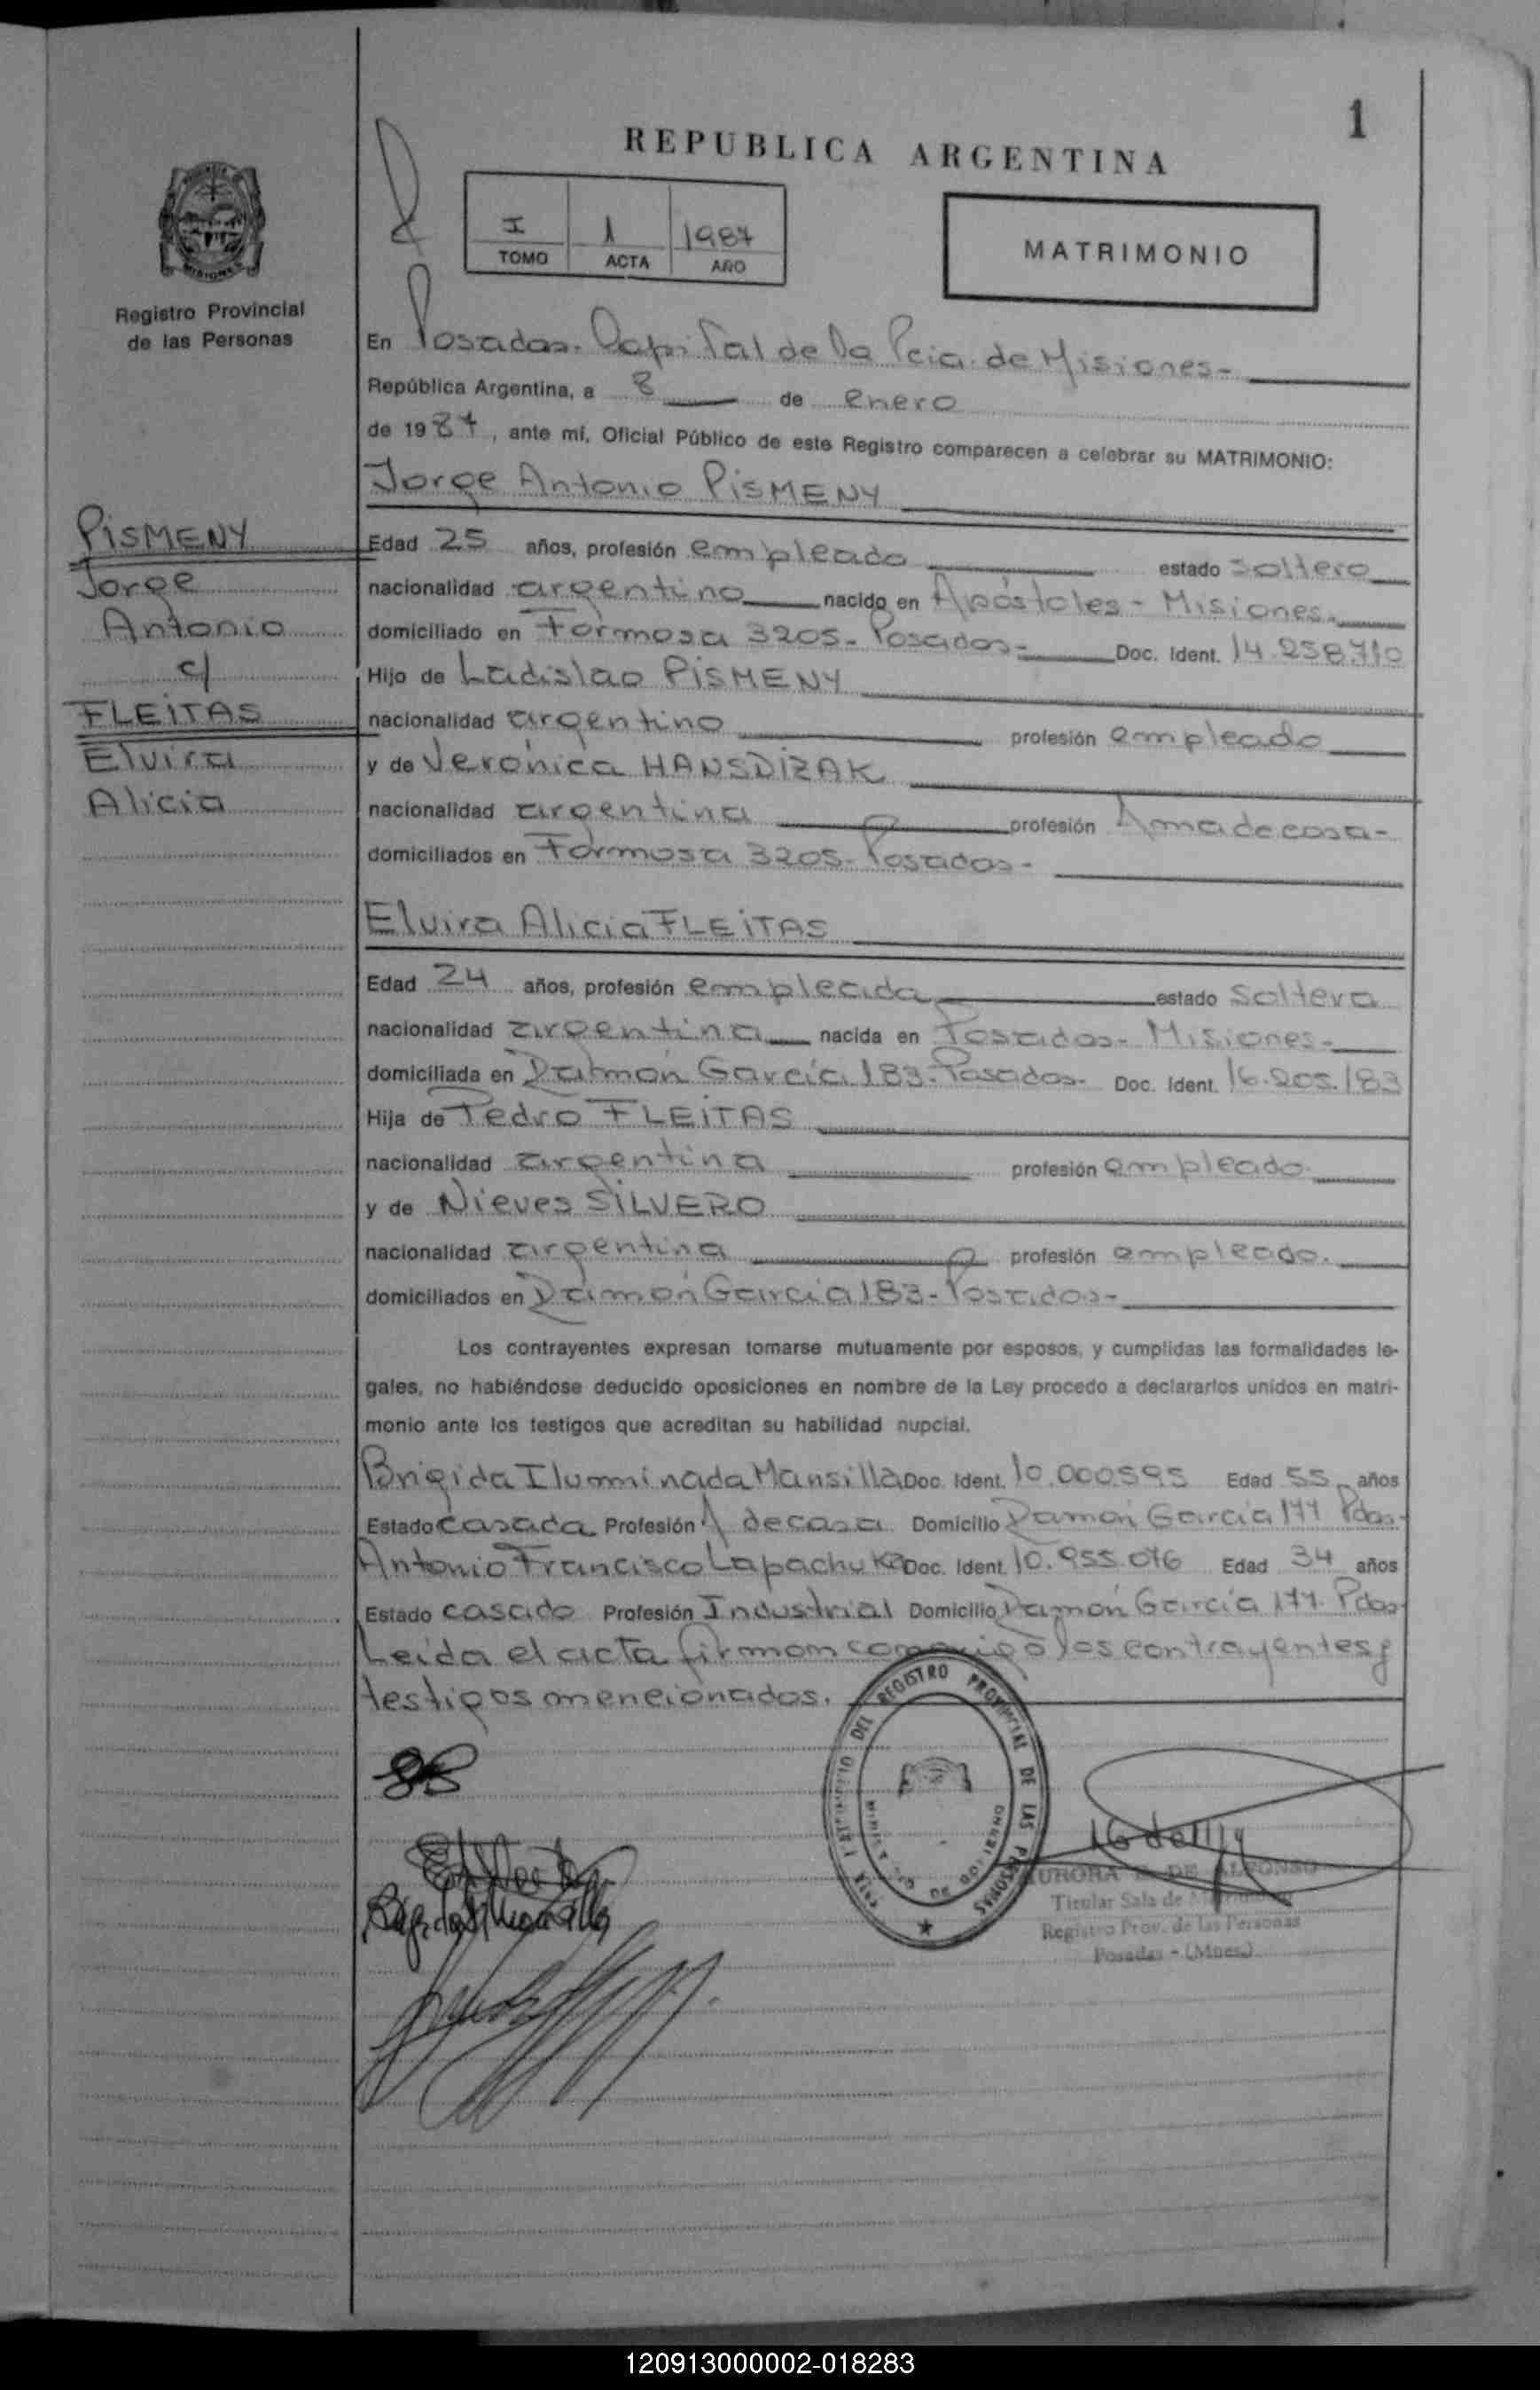 1
REPUBLICA ARGENTINA
I 1 1987
TOMO ACTA AÑO
MATRIMONIO
MISIONES
Registro Provincial
de las Personas
En Posadas. Capital de la Pcia. de Misiones-
República Argentina, a 8 de enero
de 1987, ante mí, Oficial Público de este Registro comparecen a celebrar su MATRIMONIO:
Jorge Antonio PISMENY
PISMENY
Jorge
Antonio
c/
FLEITAS
Elvira
Alicia
Edad 25 años, profesión empleado estado soltero
nacionalidad argentino nacido en Apóstoles - Misiones.
domiciliado en Formosa 3205- Posadas- Doc. Ident. 14.258.710
Hijo de Ladislao PISMENY
nacionalidad argentino profesión empleado
y de Verónica HANSDIZAK
nacionalidad argentina profesión Ama de casa-
domiciliados en Formosa 3205- Posadas-
Elvira Alicia FLEITAS
Edad 24 años, profesión empleada estado soltera
nacionalidad argentina nacida en Posadas- Misiones-
domiciliada en Ramón García 183- Posadas- Doc. Ident. 16.205.183
Hija de Pedro FLEITAS
nacionalidad argentina profesión empleado
y de Nieves SILVERO
nacionalidad argentina profesión empleado.
domiciliados en Ramón García 183- Posadas-
Los contrayentes expresan tomarse mutuamente por esposos, y cumplidas las formalidades le-
gales, no habiéndose deducido oposiciones en nombre de la Ley procedo a declararlos unidos en matri-
monio ante los testigos que acreditan su habilidad nupcial.
Brigida Iluminada Mansilla Doc. Ident. 10.000.595 Edad 55 años
Estado casada Profesión A de casa Domicilio Ramón García 177 Pdas-
Antonio Francisco Lapachuk Doc. Ident. 10.955.076 Edad 34 años
Estado casado Profesión Industrial Domicilio Ramón García 177. Pdas-
Leída el acta firman conmigo los contrayentes y
testigos mencionados.
DEL REGISTRO PROVINCIAL DE LAS PERSONAS
AURORA DE ALFONSO
Titular Sala de
Registro Prov. de las Personas
Posadas - (Mnes.)
120913000002-018283